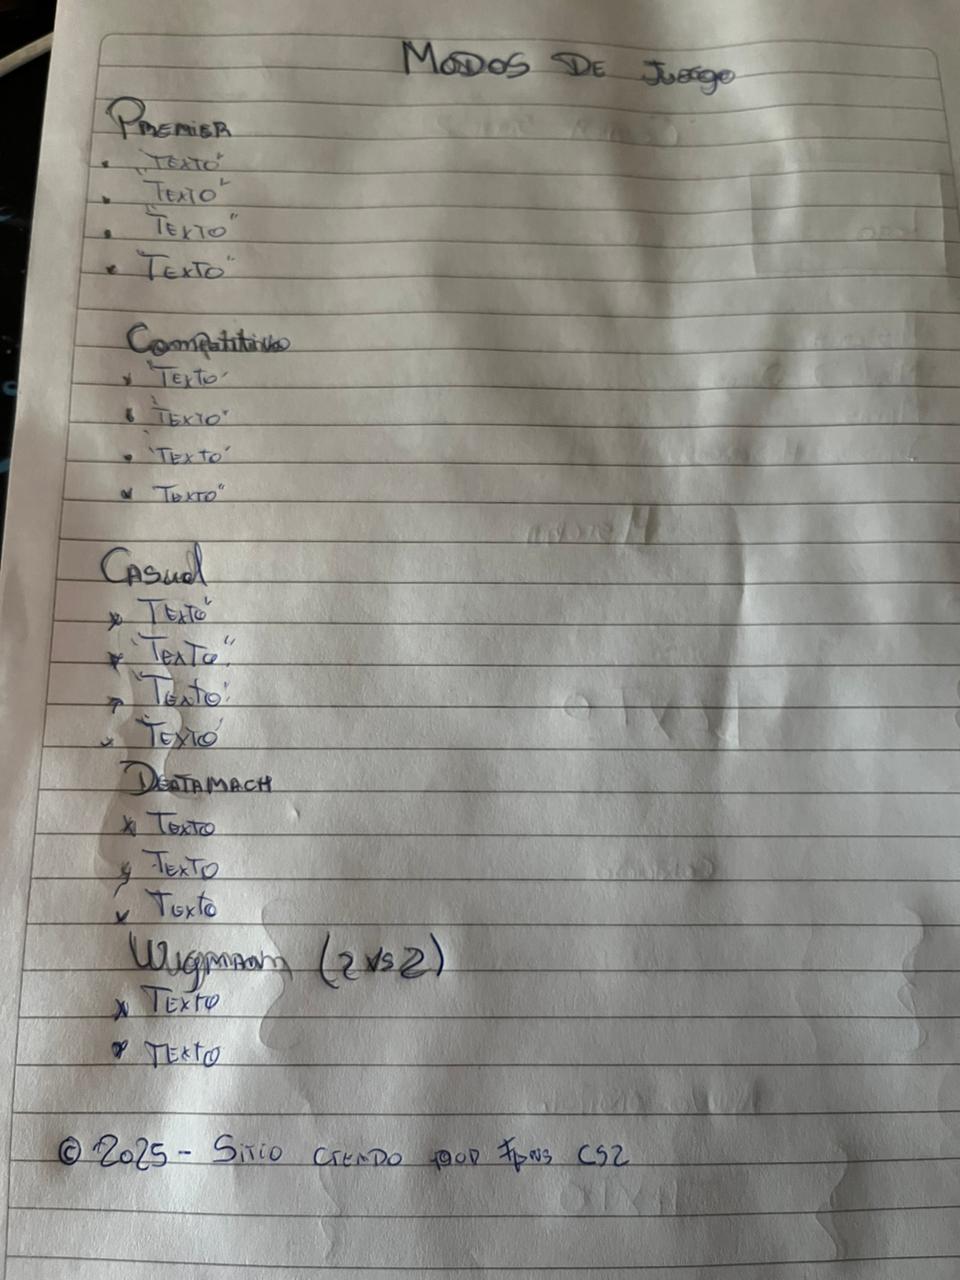 MODOS DE Juego
PREMIER
• "TEXTO"
• "TEXTO"
• "TEXTO"
• "TEXTO"
Competitivo
• "TEXTO"
• "TEXTO"
• "TEXTO"
• "TEXTO"
CASual
• "TEXTO"
• "TEXTO"
• "TEXTO"
• "TEXTO"
DEATAMACH
• TEXTO
• TEXTO
• TEXTO
(2 vs 2)
• TEXTO
• TEXTO
© 2025 - SITIO por CS2